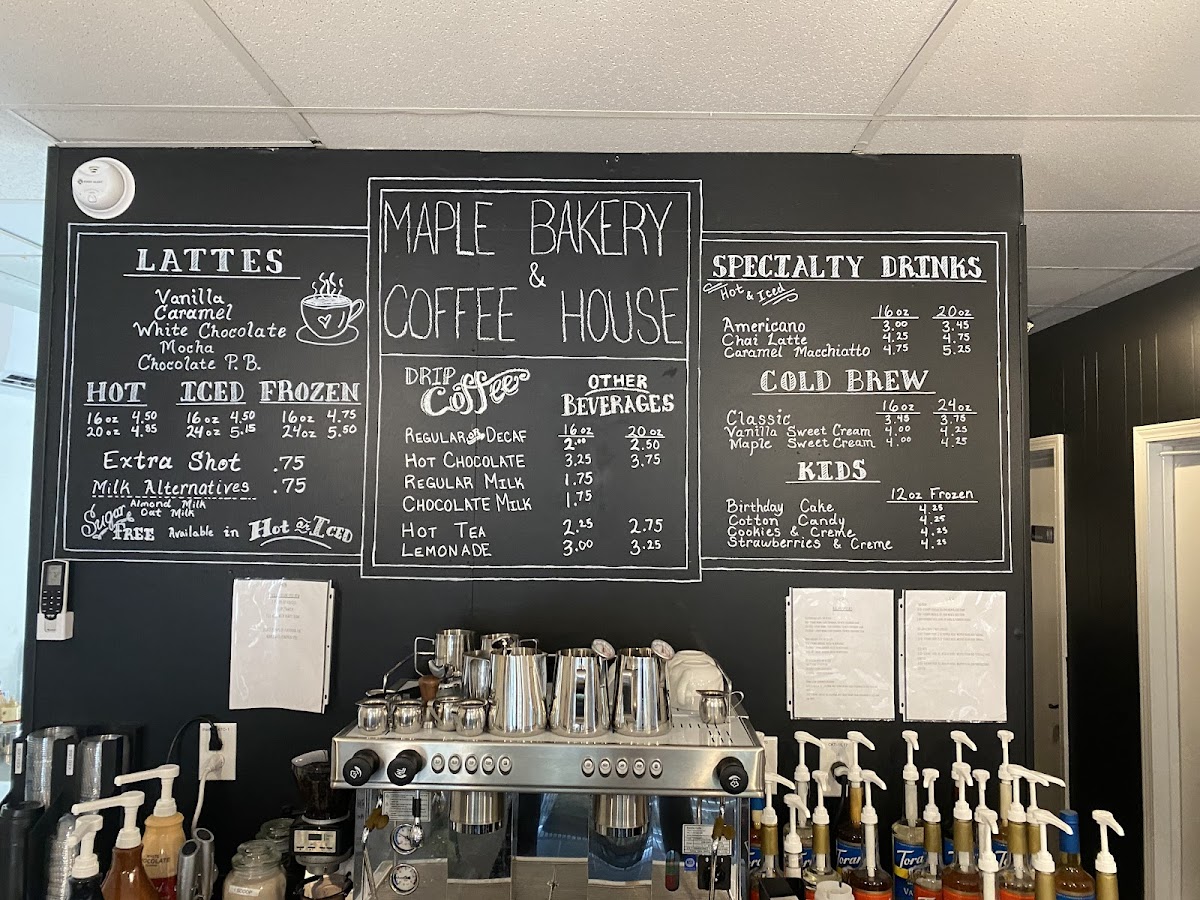 MAPLE BAKERY
&
COFFEE HOUSE
LATTES
Vanilla
Caramel
White Chocolate
Mocha
Chocolate P.B.
HOT ICED FROZEN
16oz 4.50 16oz 4.50 16oz 4.75
20oz 4.85 24oz 5.15 24oz 5.50
Extra Shot .75
Milk Alternatives .75
Almond Milk
Oat Milk
Sugar FREE Available in Hot or Iced
DRIP Coffee
OTHER
BEVERAGES
16oz 20oz
REGULAR or DECAF 2.00 2.50
HOT CHOCOLATE 3.25 3.75
REGULAR MILK 1.75
CHOCOLATE MILK 1.75
HOT TEA 2.25 2.75
LEMONADE 3.00 3.25
SPECIALTY DRINKS
Hot & Iced
16oz 20oz
Americano 3.00 3.45
Chai Latte 4.25 4.75
Caramel Macchiatto 4.75 5.25
COLD BREW
16oz 24oz
Classic 3.45 3.75
Vanilla Sweet Cream 4.00 4.25
Maple Sweet Cream 4.00 4.25
KIDS
12oz Frozen
Birthday Cake 4.25
Cotton Candy 4.25
Cookies & Creme 4.25
Strawberries & Creme 4.25